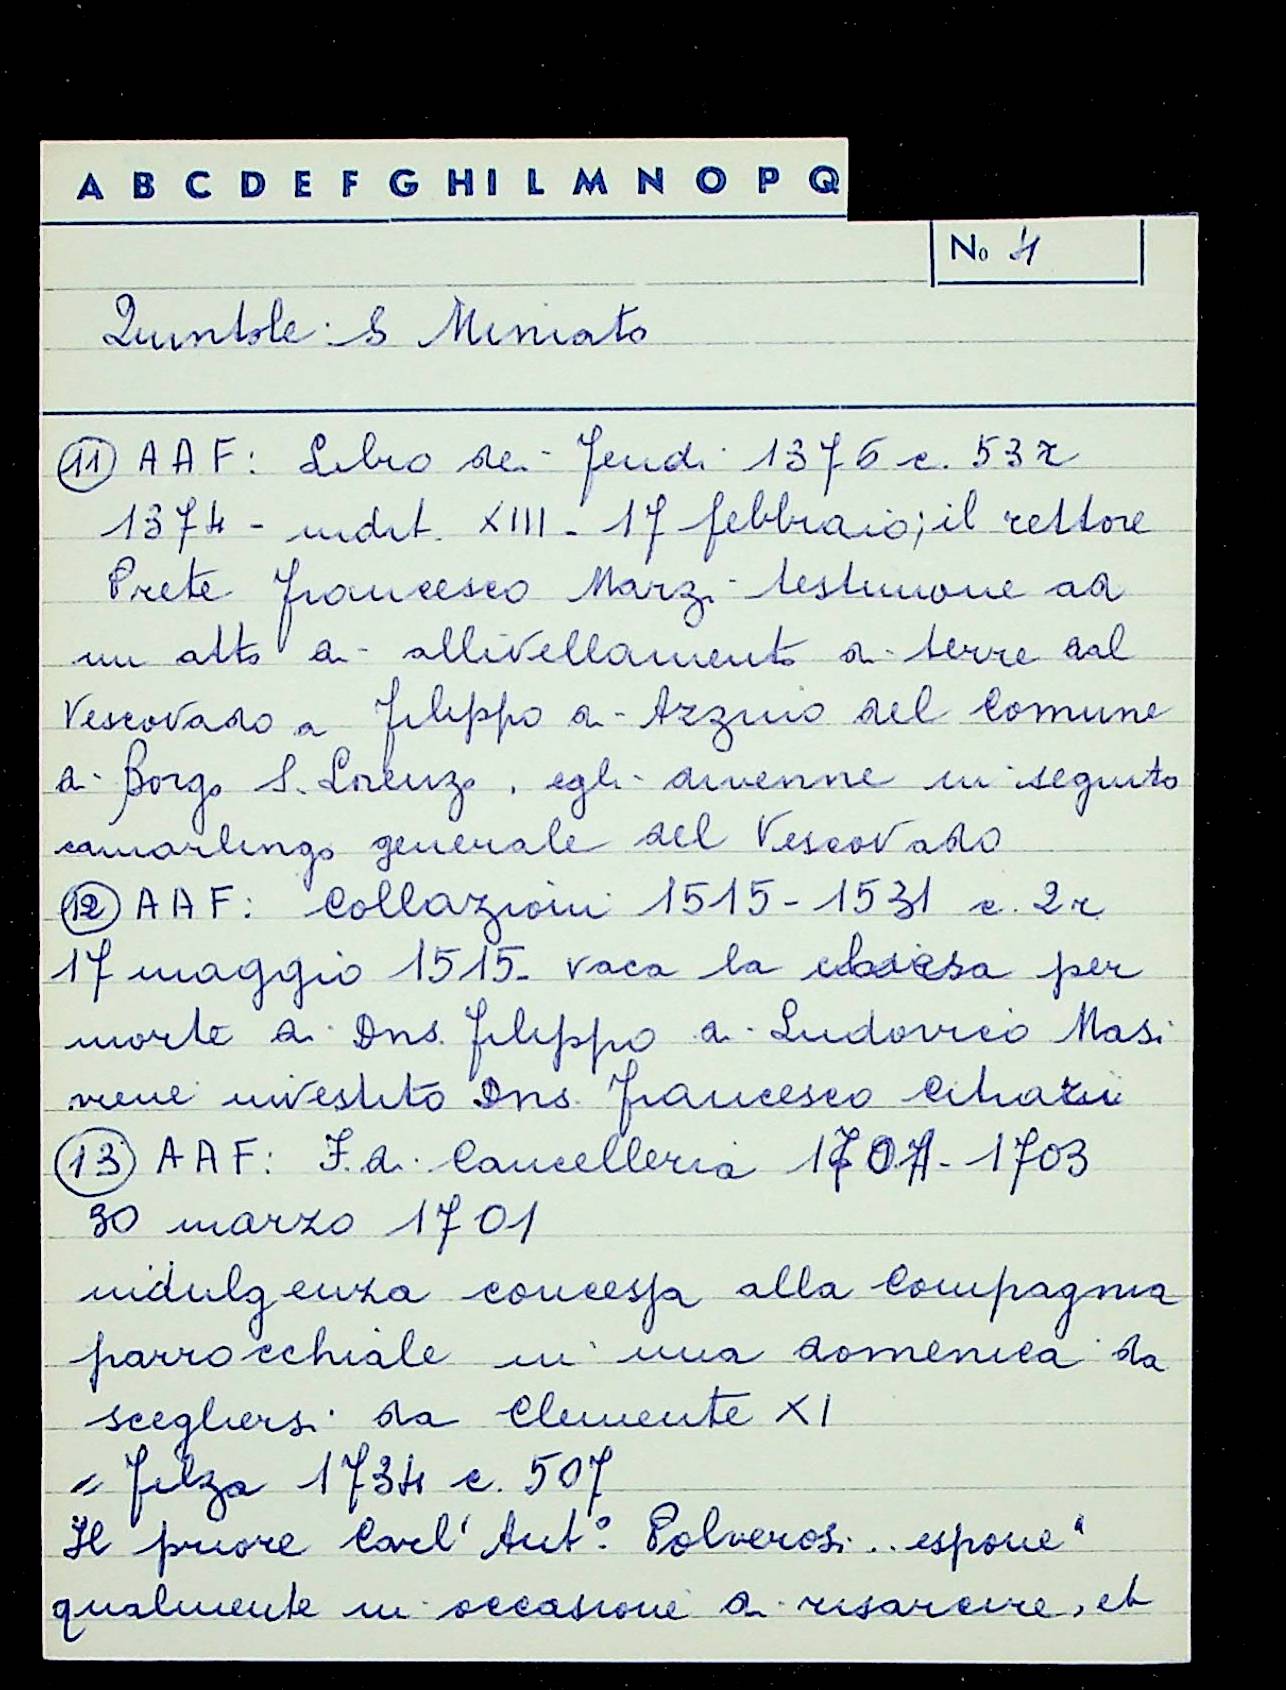 A B C D E F G H I L M N O P Q
No 4
Quintole: S Miniato
(11) AAF: Libro dei Feudi 1376 c. 53r
1374 - indit. XIII - 17 febbraio; il rettore
Prete Francesco Marzi testimone ad
un atto di allivellamento di terre dal
Vescovado a Filippo di Azzino del Comune
di Borgo S. Lorenzo, egli divenne in seguito
camarlingo generale del Vescovado
(12) AAF: Collazioni 1515-1531 c. 2r
17 maggio 1515- vaca la chiesa per
morte di Dns. Filippo di Ludovico Masi
viene investito Dns. Francesco
(13) AAF: F. di Cancelleria 1701-1703
30 marzo 1701
indulgenza concessa alla Compagnia
parrocchiale in una domenica da
scegliersi da Clemente XI
= Filza 1734 c. 507
Il priore Carl' Ant.° Polverosi.. espone "
qualmente in occasione di risarcire, et